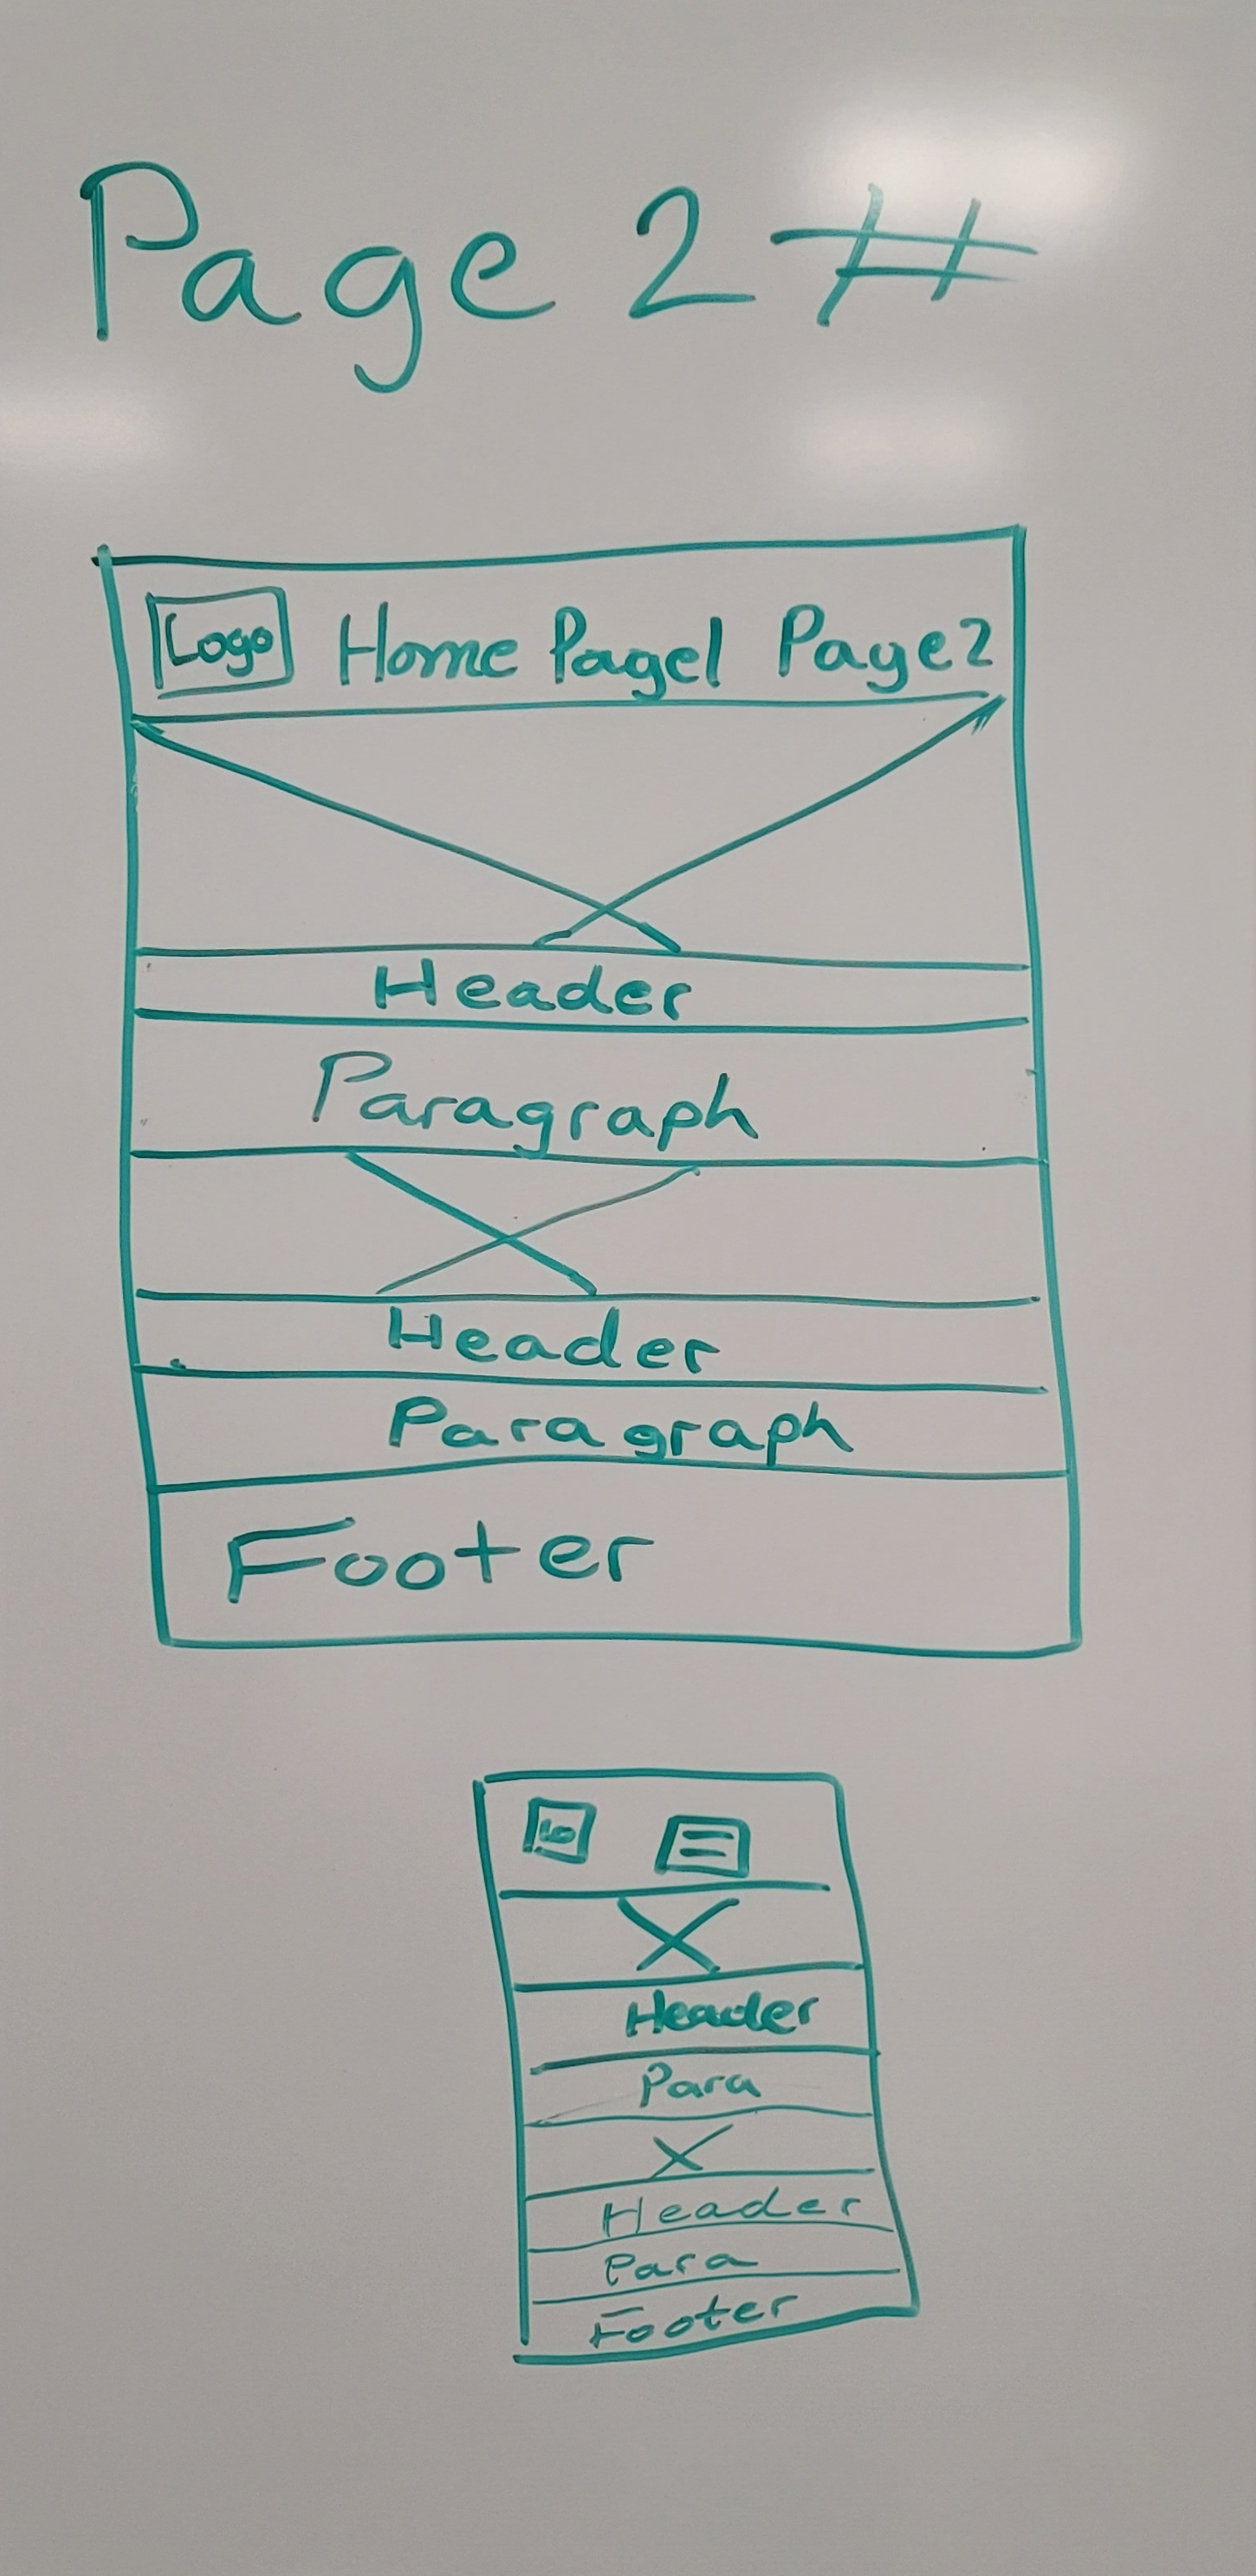 Page 2 #
Logo Home Page1 Page2
Header
Paragraph
Header
Paragraph
Footer
Header
Para
Header
Para
Footer